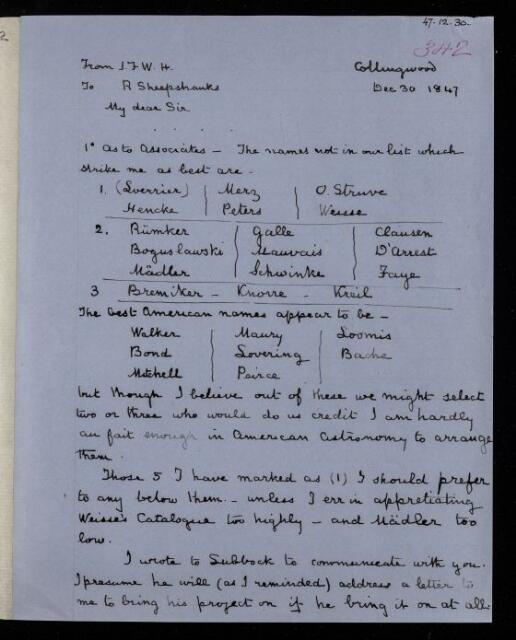 47.12.30.
342
From J.F.W.H. Collingwood
To R Sheepshanks Dec 30 1847
My dear Sir
1° As to Associates — The names not in our list which
strike me as best are -
1. (Leverrier) Merz O. Struve
Hencke Peters Weisse
2. Rümker Galle Clausen
Boguslawski Mauvais D'Arrest
Mädler Schwinke Faye
3 Bremiker - Knorre - Kreil
The best American names appear to be -
Walker Maury Loomis
Bond Lovering Bache
Mitchell Peirce
but though I believe out of these we might select
two or three who would do us credit I am hardly
au fait enough in American astronomy to arrange
them.
Those 5 I have marked as (1) I should prefer
to any below them - unless I err in appretiating
Weisse's Catalogue too highly - and Mädler too
low.
I wrote to Lubbock to communicate with you.
I presume he will (as I reminded) address a letter to
me to bring his project on if he bring it on at all.